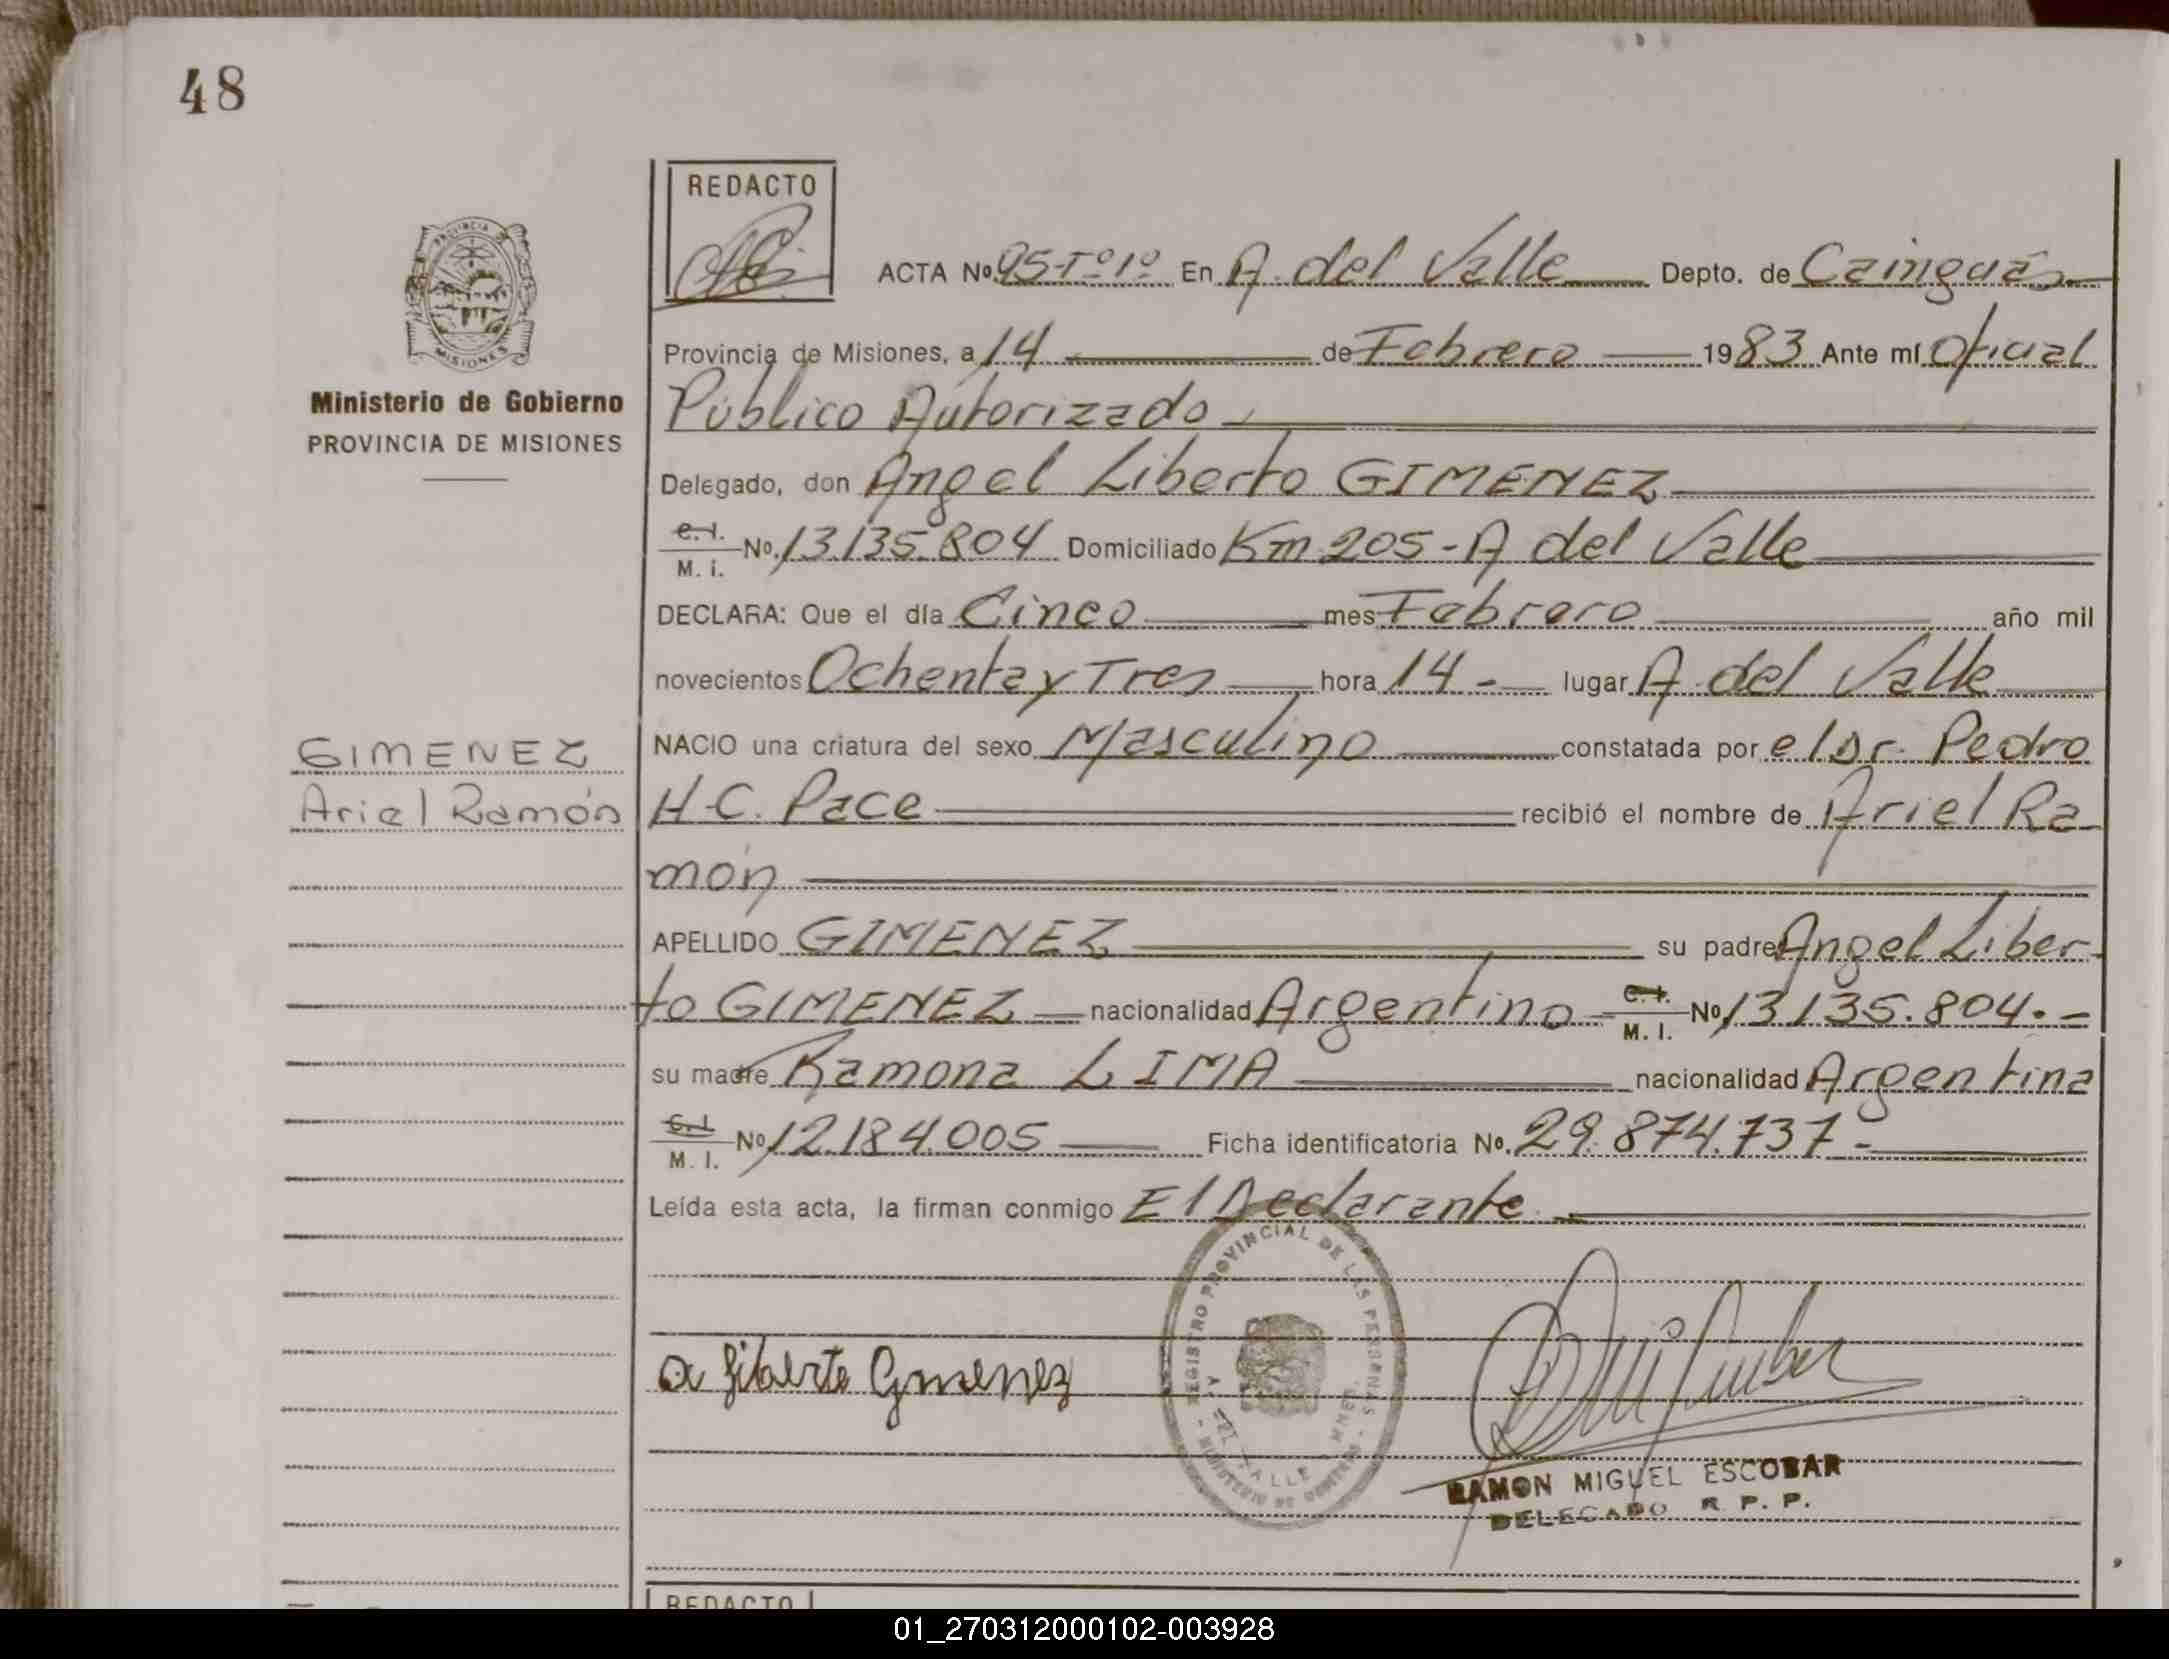 48
REDACTO
ACTA No. 95-Tº1º En A. del Valle Depto. de Cainguás
Provincia de Misiones, a 14 de Febrero 1983 Ante mí Oficial
Público Autorizado
Delegado, don Angel Liberto GIMENEZ
C.I.
M. I. No. 13.135.804 Domiciliado Km 205-A del Valle
DECLARA: Que el día Cinco mes Febrero año mil
novecientos Ochenta y Tres hora 14 - lugar A. del Valle
NACIO una criatura del sexo Masculino constatada por el Dr. Pedro
H-C. Pace recibió el nombre de Ariel Ra-
món
APELLIDO GIMENEZ su padre Angel Liber-
to GIMENEZ nacionalidad Argentino C.I.
M. I. No. 13.135.804.-
su madre Ramona LIMA nacionalidad Argentina
C.I.
M. I. No. 12.184.005 Ficha identificatoria No. 29.874.737-
Leída esta acta, la firman conmigo El Declarante
PROVINCIA
MISIONES
Ministerio de Gobierno
PROVINCIA DE MISIONES
GIMENEZ
Ariel Ramón
a Liberto Gimenez
REGISTRO PROVINCIAL DE LAS PERSONAS
A. DEL VALLE
RAMON MIGUEL ESCOBAR
DELEGADO R. P. P.
REDACTO
01_270312000102-003928